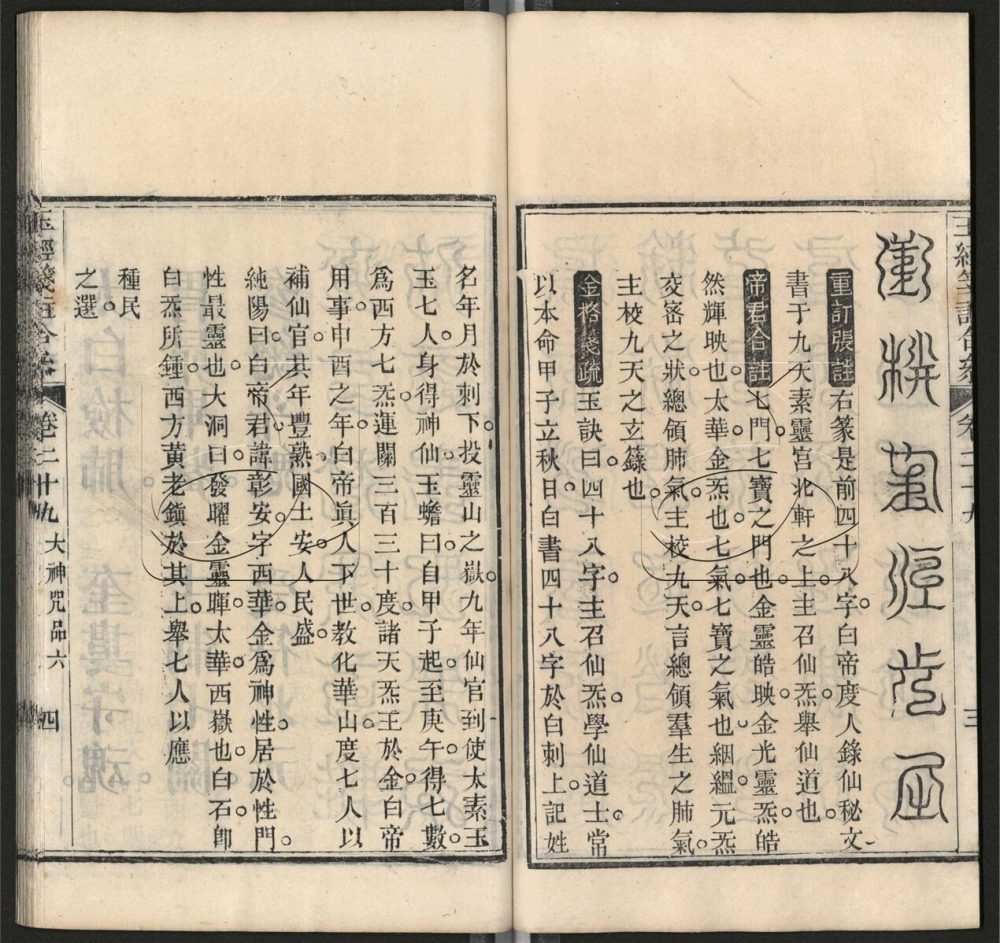 重訂張註右篆是前四十八字白帝度人錄仙秘文
書于九天素靈宮北軒之上主召仙炁舉仙道也
帝君合註七門七寶之門也金靈皓映金光靈炁皓
然輝映也太華金炁也七氣七寶之氣也絪縕元炁
交密之狀總領肺氣主校九天言總領羣生之肺氣
主校九天之玄籙也
金格箋疏玉訣曰四十八字主召仙炁學仙道士常
以本命甲子立秋日白書四十八字於白刺上記姓
名年月於刺下投靈山之嶽九年仙官到使太素玉
玉七人身得神仙玉蟾曰自甲子起至庚午得七數
為西方七炁運關三百三十度諸天炁王於金白帝
用事申酉之年白帝眞人下世教化華山度七人以
補仙官其年豐熟國土安人民盛
純陽曰白帝君諱彰安字西華金為神性居於性門
性最靈也大洞曰發曜金靈暉太華西嶽也白石卽
白炁所鍾西方黃老鎭於其上舉七人以應
種民
之選
卷二十九
大神咒品六
四